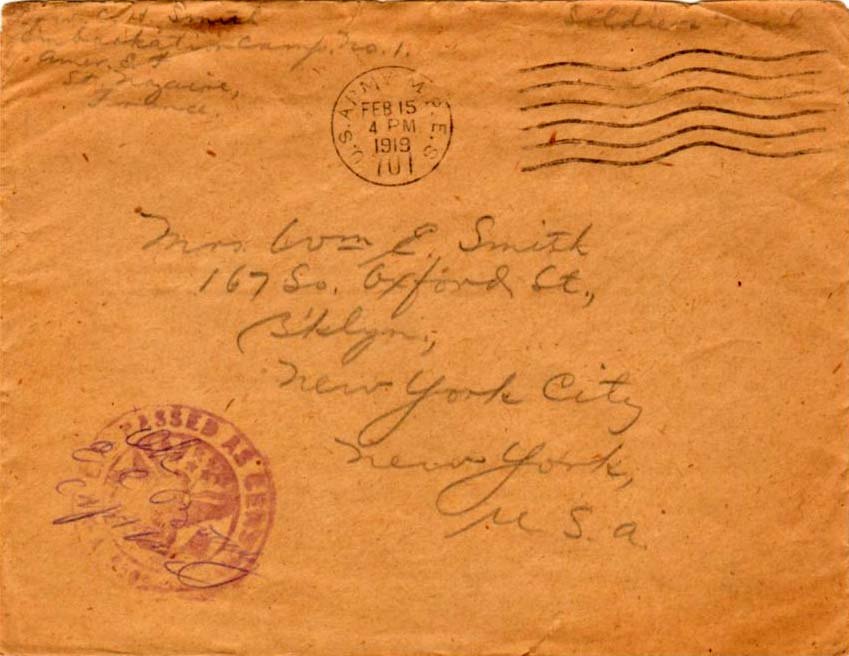 C. H. Smith
Embarkation Camp, No. 1.
Amer. E. F.
St. Nazaire,
France.
Soldiers Mail
U.S. ARMY M.P.E.S.
FEB 15
4 PM
1919
701
Mrs. Wm E. Smith
167 So. Oxford St.,
B'klyn,
New York City
New York,
U.S.A.
PASSED AS CENSORED